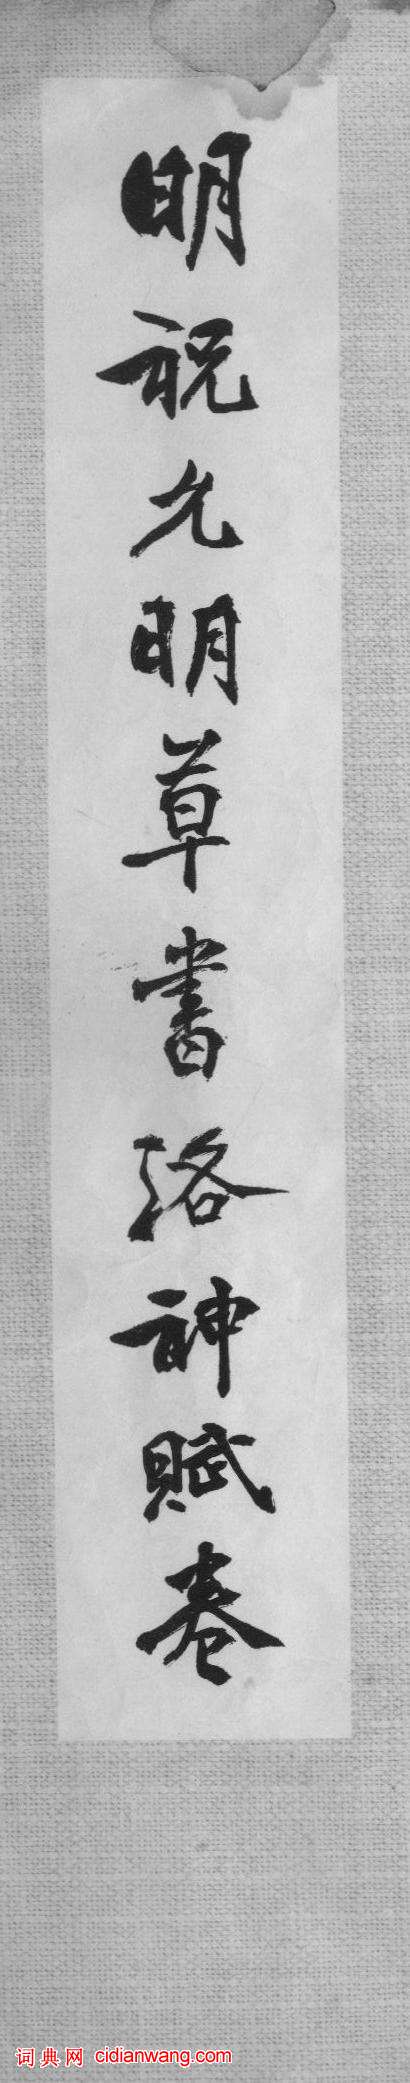 明祝允明草書洛神賦卷
词典网 cidianwang.com